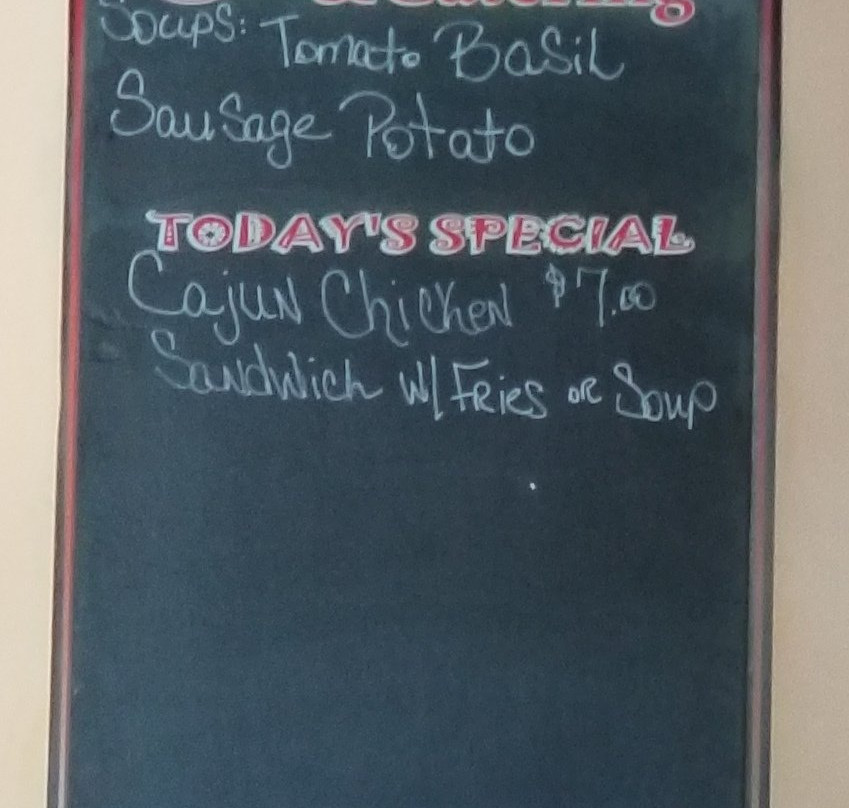 Soups: Tomato Basil
Sausage Potato
TODAY'S SPECIAL
Cajun Chicken $7.00
Sandwich w/ Fries or Soup